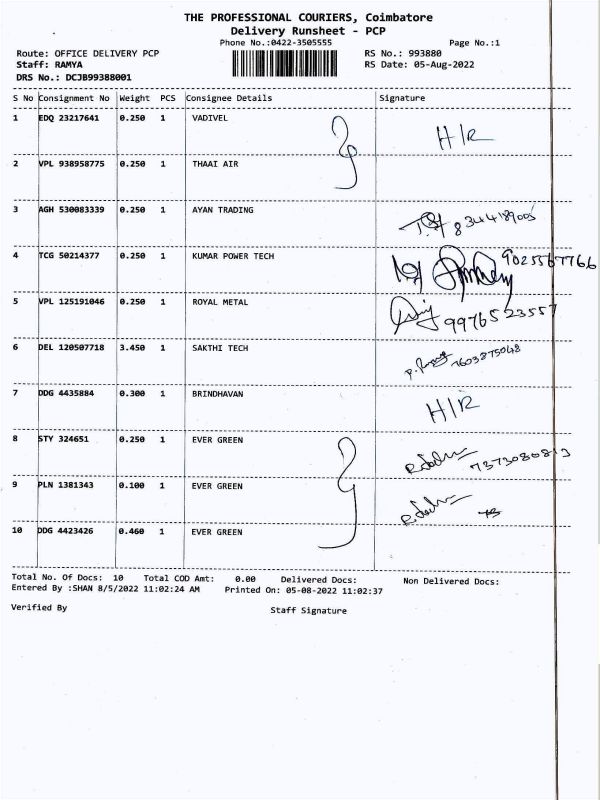 THE PROFESSIONAL COURIERS, Coimbatore
Delivery Runsheet - PCP
Phone No.:0422-3505555 Page No.:1
Route: OFFICE DELIVERY PCP RS No.: 993880
Staff: RAMYA RS Date: 05-Aug-2022
DRS No.: DCJB99388001
S No Consignment No Weight PCS Consignee Details Signature
1 EDQ 23217641 0.250 1 VADIVEL H/R
2 VPL 938958775 0.250 1 THAAI AIR
3 AGH 530083339 0.250 1 AYAN TRADING 8344189005
4 TCG 50214377 0.250 1 KUMAR POWER TECH 9025567766
5 VPL 125191046 0.250 1 ROYAL METAL 9976523557
6 DEL 120507718 3.450 1 SAKTHI TECH 7603875048
7 DDG 4435884 0.300 1 BRINDHAVAN H/R
8 STY 324651 0.250 1 EVER GREEN 7373080813
9 PLN 1381343 0.100 1 EVER GREEN
10 DDG 4423426 0.460 1 EVER GREEN
Total No. Of Docs: 10 Total COD Amt: 0.00 Delivered Docs: Non Delivered Docs:
Entered By :SHAN 8/5/2022 11:02:24 AM Printed On: 05-08-2022 11:02:37
Verified By Staff Signature